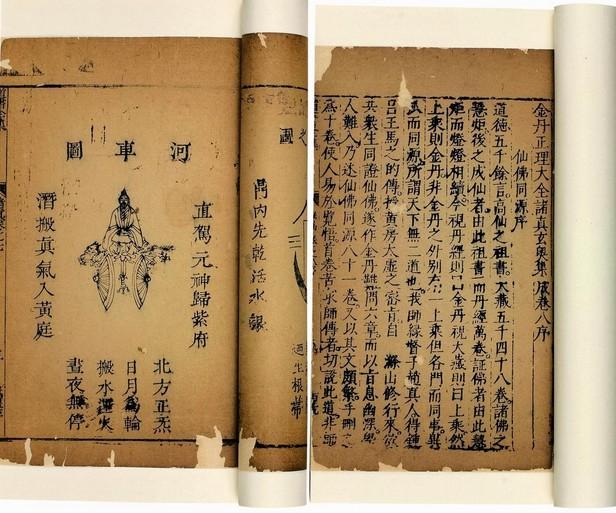 金丹正理大全諸真玄奧集成卷八序
仙佛同源序
道德五千餘言高仙之祖書大藏五千四十八卷諸佛之
慧炬後之成仙者由此祖書而丹經萬卷證佛者由此慧
炬而燈燈相續今視丹經則曰金丹視大藏則曰上乘然
上乘則金丹非金丹之外別有一上乘但各門而同事異
而同源所謂天下無二道也我師緣督子趙真人得鍾
呂王馬之的傳授黃房大虛之密旨自 山修行來欲
與衆生同證仙佛遂作金丹問六章而以旨息幽深學
人難入乃述仙佛同源八十一卷又以其文頗繁手刪之
為十卷使人易於覽悟首卷苦求師傳者切說此道非師
之圖
門內先乾活水銀
迴生根蒂
河車圖
直駕元神歸紫府
潛搬真氣入黃庭
北方正炁
日月為輪
搬水運火
晝夜無停